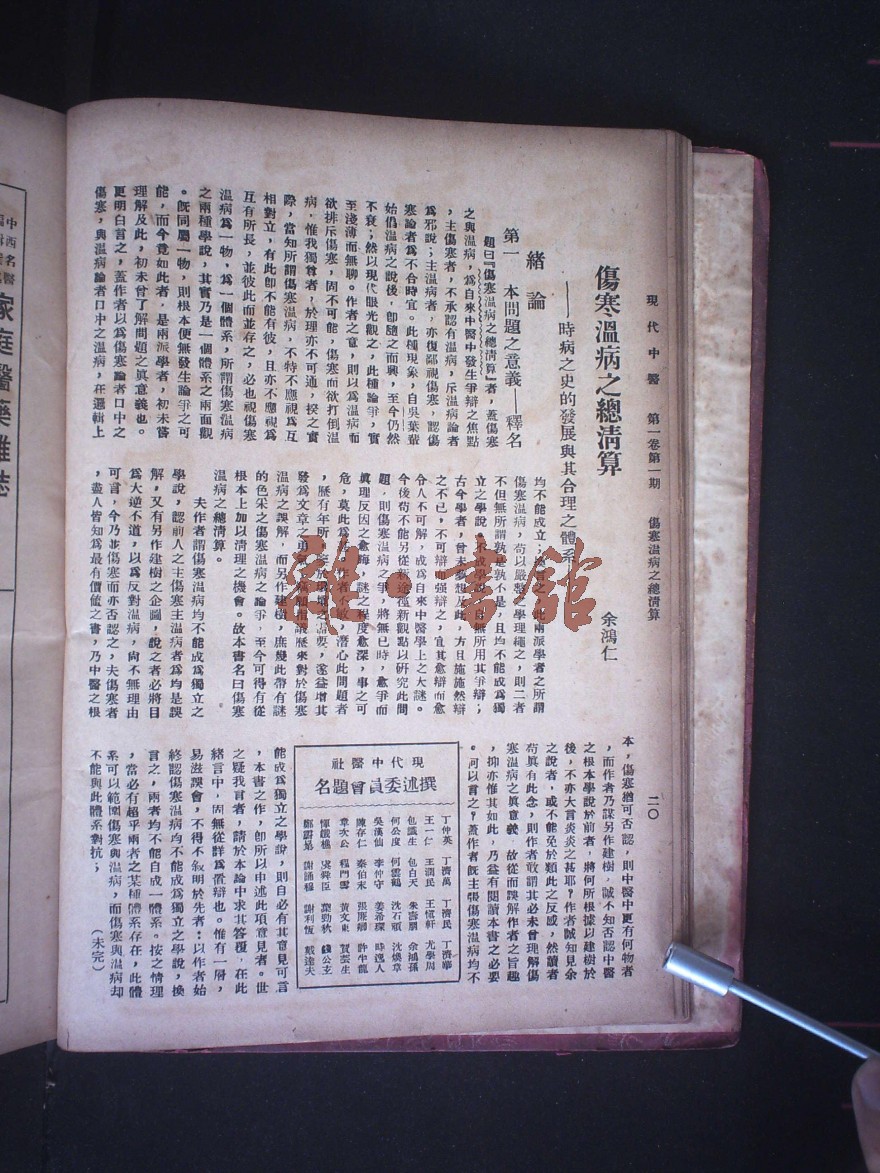 現代中醫 第一卷第一期 傷寒溫病之總清算
二〇
傷寒溫病之總清算
——時病之史的發展與其合理之體系——
余鴻仁
緒論
第一 本問題之意義——釋名
題曰『傷寒溫病之總清算』者,蓋傷寒
之與溫病,爲自來中醫中發生爭辯之焦點
,主傷寒者,不承認有溫病,斥溫病論者
爲邪說;主溫病者,亦復鄙視傷寒,認傷
寒論者爲不合時宜。此種現象,自吳葉輩
始倡溫病之說後,卽隨之而興,至今仍然
不衰;然以現代眼光觀之,此種論爭,實
至淺薄而無聊。作者之意,則以爲溫病而
欲排斥傷寒,固不可能,傷寒而欲打倒溫
病,惟我獨尊者,於理亦不可通,按之實
際,當知所謂傷寒溫病,不特不應視爲互
相對立,有此卽不能有彼,且亦不應視爲
互有所長,並彼此而並存之,必也視傷寒
溫病爲一物,爲一個體系,所謂傷寒溫病
之兩種學說,其實乃是一個體系之兩面觀
。旣同屬一物,則根本便無發生論爭之可
能,而今竟如此者,是兩派學者,初未嘗
理解及此,初未曾了解問題之眞意義也。
更明白言之,蓋作者以爲傷寒論者口中之
傷寒,與溫病論者口中之溫病,在邏輯上
均不能成立;換言之,此兩派學者之所謂
傷寒溫病,苟以嚴整之學理繩之,則二者
不但無所謂孰是孰不是,且均不能成爲獨
立之學說,不成學說,自無所用其爭辯;
古今學者,曾未夢想及此,方且施施然辯
之不已,不可辯而强辯之,宜其愈辯而愈
令人不可解,成爲自來中醫學上之大謎。
今後苟不能另從新途徑新觀點以研究此問
題,則傷寒溫病之爭,將無已時,愈爭而
眞理反因之愈晦,謎之程度愈深,事之可
危,莫此爲甚。作者不敏,潛心此問題者
,歷有年所,
發爲文章之勇氣,
溫病之誤解,而另作建樹,庶幾此帶有謎
的色采之傷寒溫病之論爭,至今可得有從
根本上加以清理之機會。故本書名曰傷寒
溫病之總清算。
夫作者謂傷寒溫病均不能成爲獨立之
學說,認前人之主傷寒主溫病者爲均是誤
解,又有另作建樹之企圖,說之者必將目
爲大逆不道,以爲反對溫病,尙不無理由
可言,今乃並傷寒而亦否認之,夫傷寒者
,盡人皆知爲最有價值之書,乃中醫之根
本,傷寒猶可否認,則中醫中更有何物者
,而作者乃謀另作建樹,誠不知否認中醫
之根本學說於前者,將何所根據以建樹於
後,不亦大言炎炎之甚耶?作者誠知見余
之說者,或不能免於類此之反感,然讀者
苟眞有此念,則作者敢謂其必未曾理解傷
寒溫病之眞意義,故從而誤解作者之旨趣
,抑亦惟其如此,乃益有閱讀本書之必要
。何以言之?蓋作者旣主張傷寒溫病均不
能成爲獨立之學說,則自必有其意見可言
,本書之作,卽所以申述此項意見者。世
之疑我言者,請於本論中求其答覆,在此
緒言中,固無從詳爲置辯也。惟有一層,
易滋誤會,不得不敍明於先者:以作者始
終認傷寒溫病均不能成爲獨立之學說,換
言之,兩者均不能自成一體系。按之情理
,當必有超乎兩者之某種體系存在,此體
系可以範圍傷寒與溫病,而傷寒與溫病却
不能與此體系對抗;
(未完)
現代中醫社
撰述委員會題名
丁仲英 丁濟萬 丁濟民 丁濟華
王一仁 王潤民 王愼軒 尤學周
包識生 包白天 朱壽朋 余鴻孫
何公度 何雲鶴 沈石頑 沈煥章
吳漢仙 李仲守 姜希琛 時逸人
陳存仁 秦伯未 張贊卿 許半龍
章次公 程門雪 黃文東 賀芸生
惲鐵樵 虞舜臣 葉勁秋 錢公玄
謝誦穆 謝利恆 戴達夫
中西名醫
家庭醫藥雜誌
雜·書館